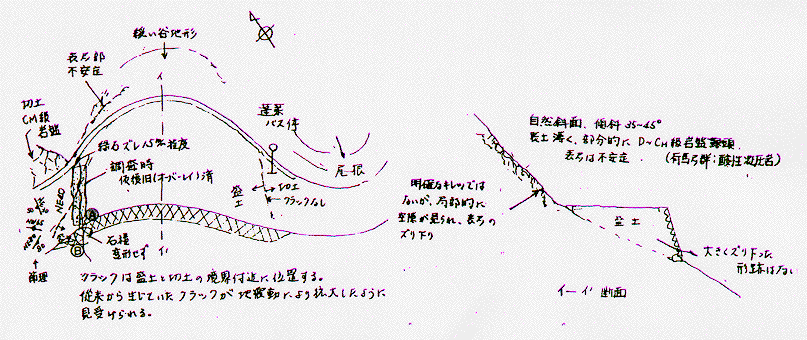 緩い谷地形
表層部
不安定
イ
切土
CM級
岩盤
縁石ズレ15㎝程度
調査時
仮復旧(オーバーレイ)済
蓬莱
バス停
尾根
盛土
切土
クラックなし
A
B
盛土
石積
変形せず
イ'
節理
クラックは盛土と切土の境界付近に位置する。
従来から生じていたクラックが地震動により拡大したように
見受けられる。
自然斜面、傾斜35~45°
表土薄く、部分的にD~CH級岩盤露頭
表層は不安定
(有馬層群:酸性凝灰岩)
明確なキレツでは
ないが、局部的に
空隙が見られ、表層の
ズリ下り
盛土
大きくズリ下った
形跡はない
イ-イ' 断面